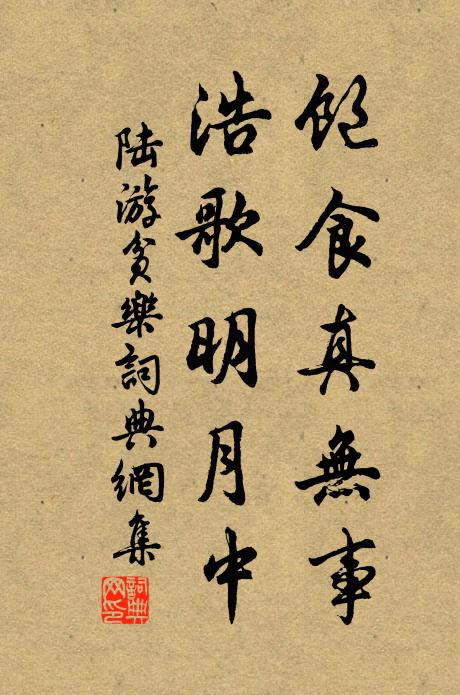 飽食真無事
浩歌明月中
陸游貧樂詞典網集
詞典网印